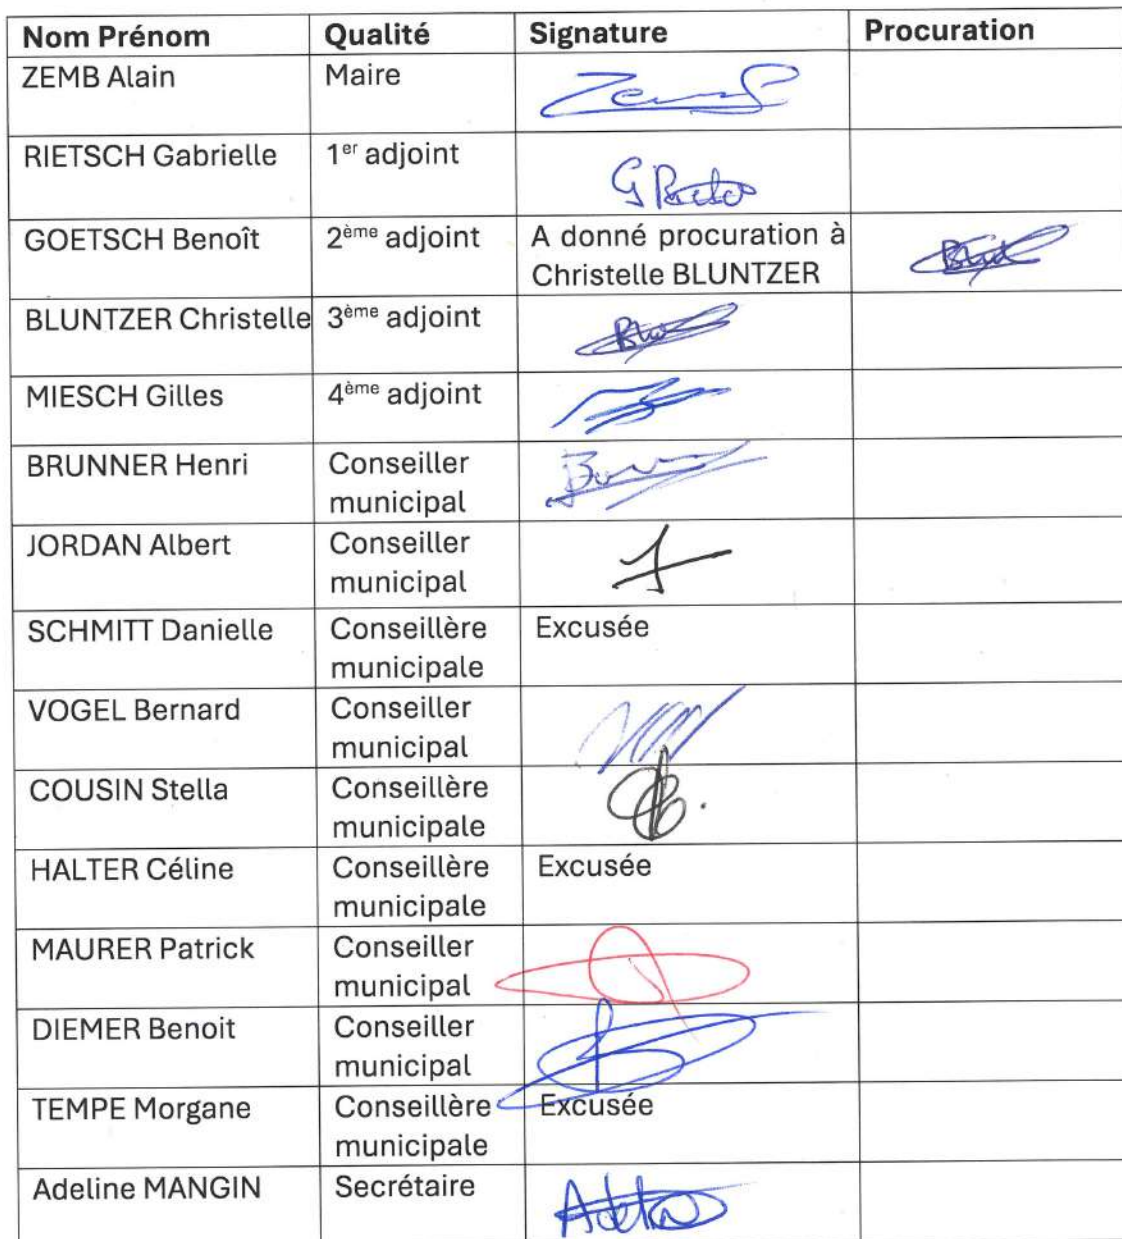 Nom Prénom Qualité Signature Procuration
ZEMB Alain Maire
RIETSCH Gabrielle 1er adjoint
GOETSCH Benoît 2ème adjoint A donné procuration à
Christelle BLUNTZER
BLUNTZER Christelle 3ème adjoint
MIESCH Gilles 4ème adjoint
BRUNNER Henri Conseiller
municipal
JORDAN Albert Conseiller
municipal
SCHMITT Danielle Conseillère Excusée
municipale
VOGEL Bernard Conseiller
municipal
COUSIN Stella Conseillère
municipale
HALTER Céline Conseillère Excusée
municipale
MAURER Patrick Conseiller
municipal
DIEMER Benoit Conseiller
municipal
TEMPE Morgane Conseillère Excusée
municipale
Adeline MANGIN Secrétaire